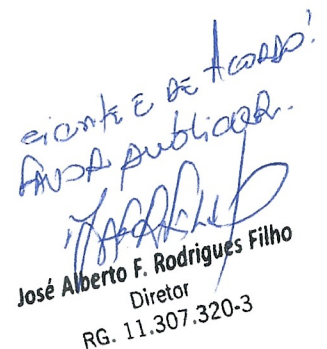 ciente E DE ACORDO!
FAVOR publicar.
José Alberto F. Rodrigues Filho
Diretor
RG. 11.307.320-3